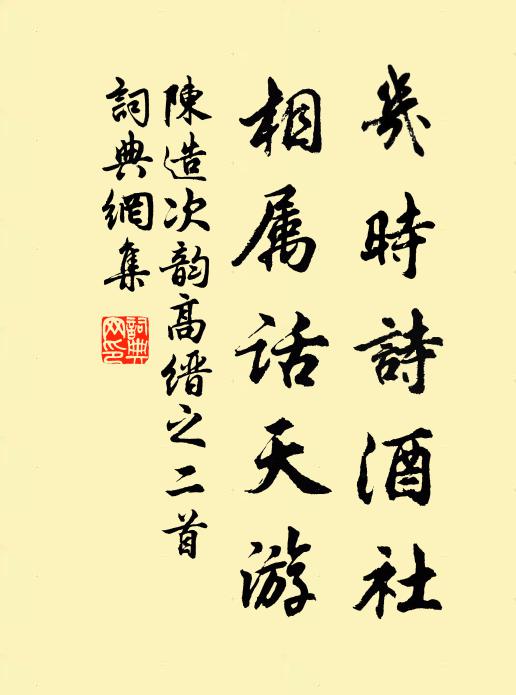 幾時詩酒社
相属话天游
陳造次韵高缙之二首
詞典網集
詞典
网印